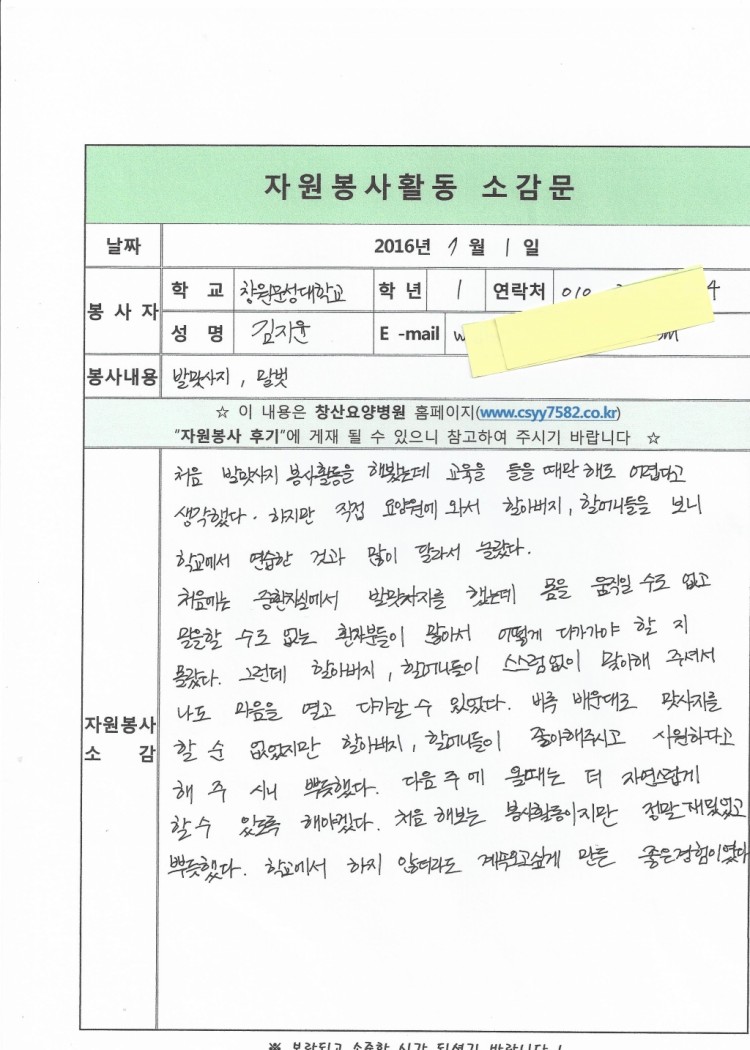 자원봉사활동 소감문
날짜 2016년 7월 1일
봉사자 학교 창원문성대학교 학년 1 연락처 010 4
성명 김지윤 E-mail w m
봉사내용 발맛사지, 말벗
☆ 이 내용은 창산요양병원 홈페이지(www.csyy7582.co.kr)
"자원봉사 후기"에 게재 될 수 있으니 참고하여 주시기 바랍니다 ☆
자원봉사 소감
처음 발맛사지 봉사활동을 해봤는데 교육을 들을 때만 해도 어렵다고
생각했다. 하지만 직접 요양원에 와서 할아버지, 할머니들을 보니
학교에서 연습한 것과 많이 달라서 놀랐다.
처음에는 중환자실에서 발맛사지를 했는데 몸을 움직일 수도 없고
말을할 수도 없는 환자분들이 많아서 어떻게 다가가야 할 지
몰랐다. 그런데 할아버지, 할머니들이 스스럼없이 맞이해 주셔서
나도 마음을 열고 다가갈 수 있었다. 비록 배운대로 맛사지를
할 순 없었지만 할아버지, 할머니들이 좋아해주시고 시원하다고
해 주 시니 뿌듯했다. 다음 주에 올때는 더 자연스럽게
할수 있도록 해야겠다. 처음 해보는 봉사활동이지만 정말 재밌었고
뿌듯했다. 학교에서 하지 않더라도 계속오고싶게 만든 좋은경험이였다